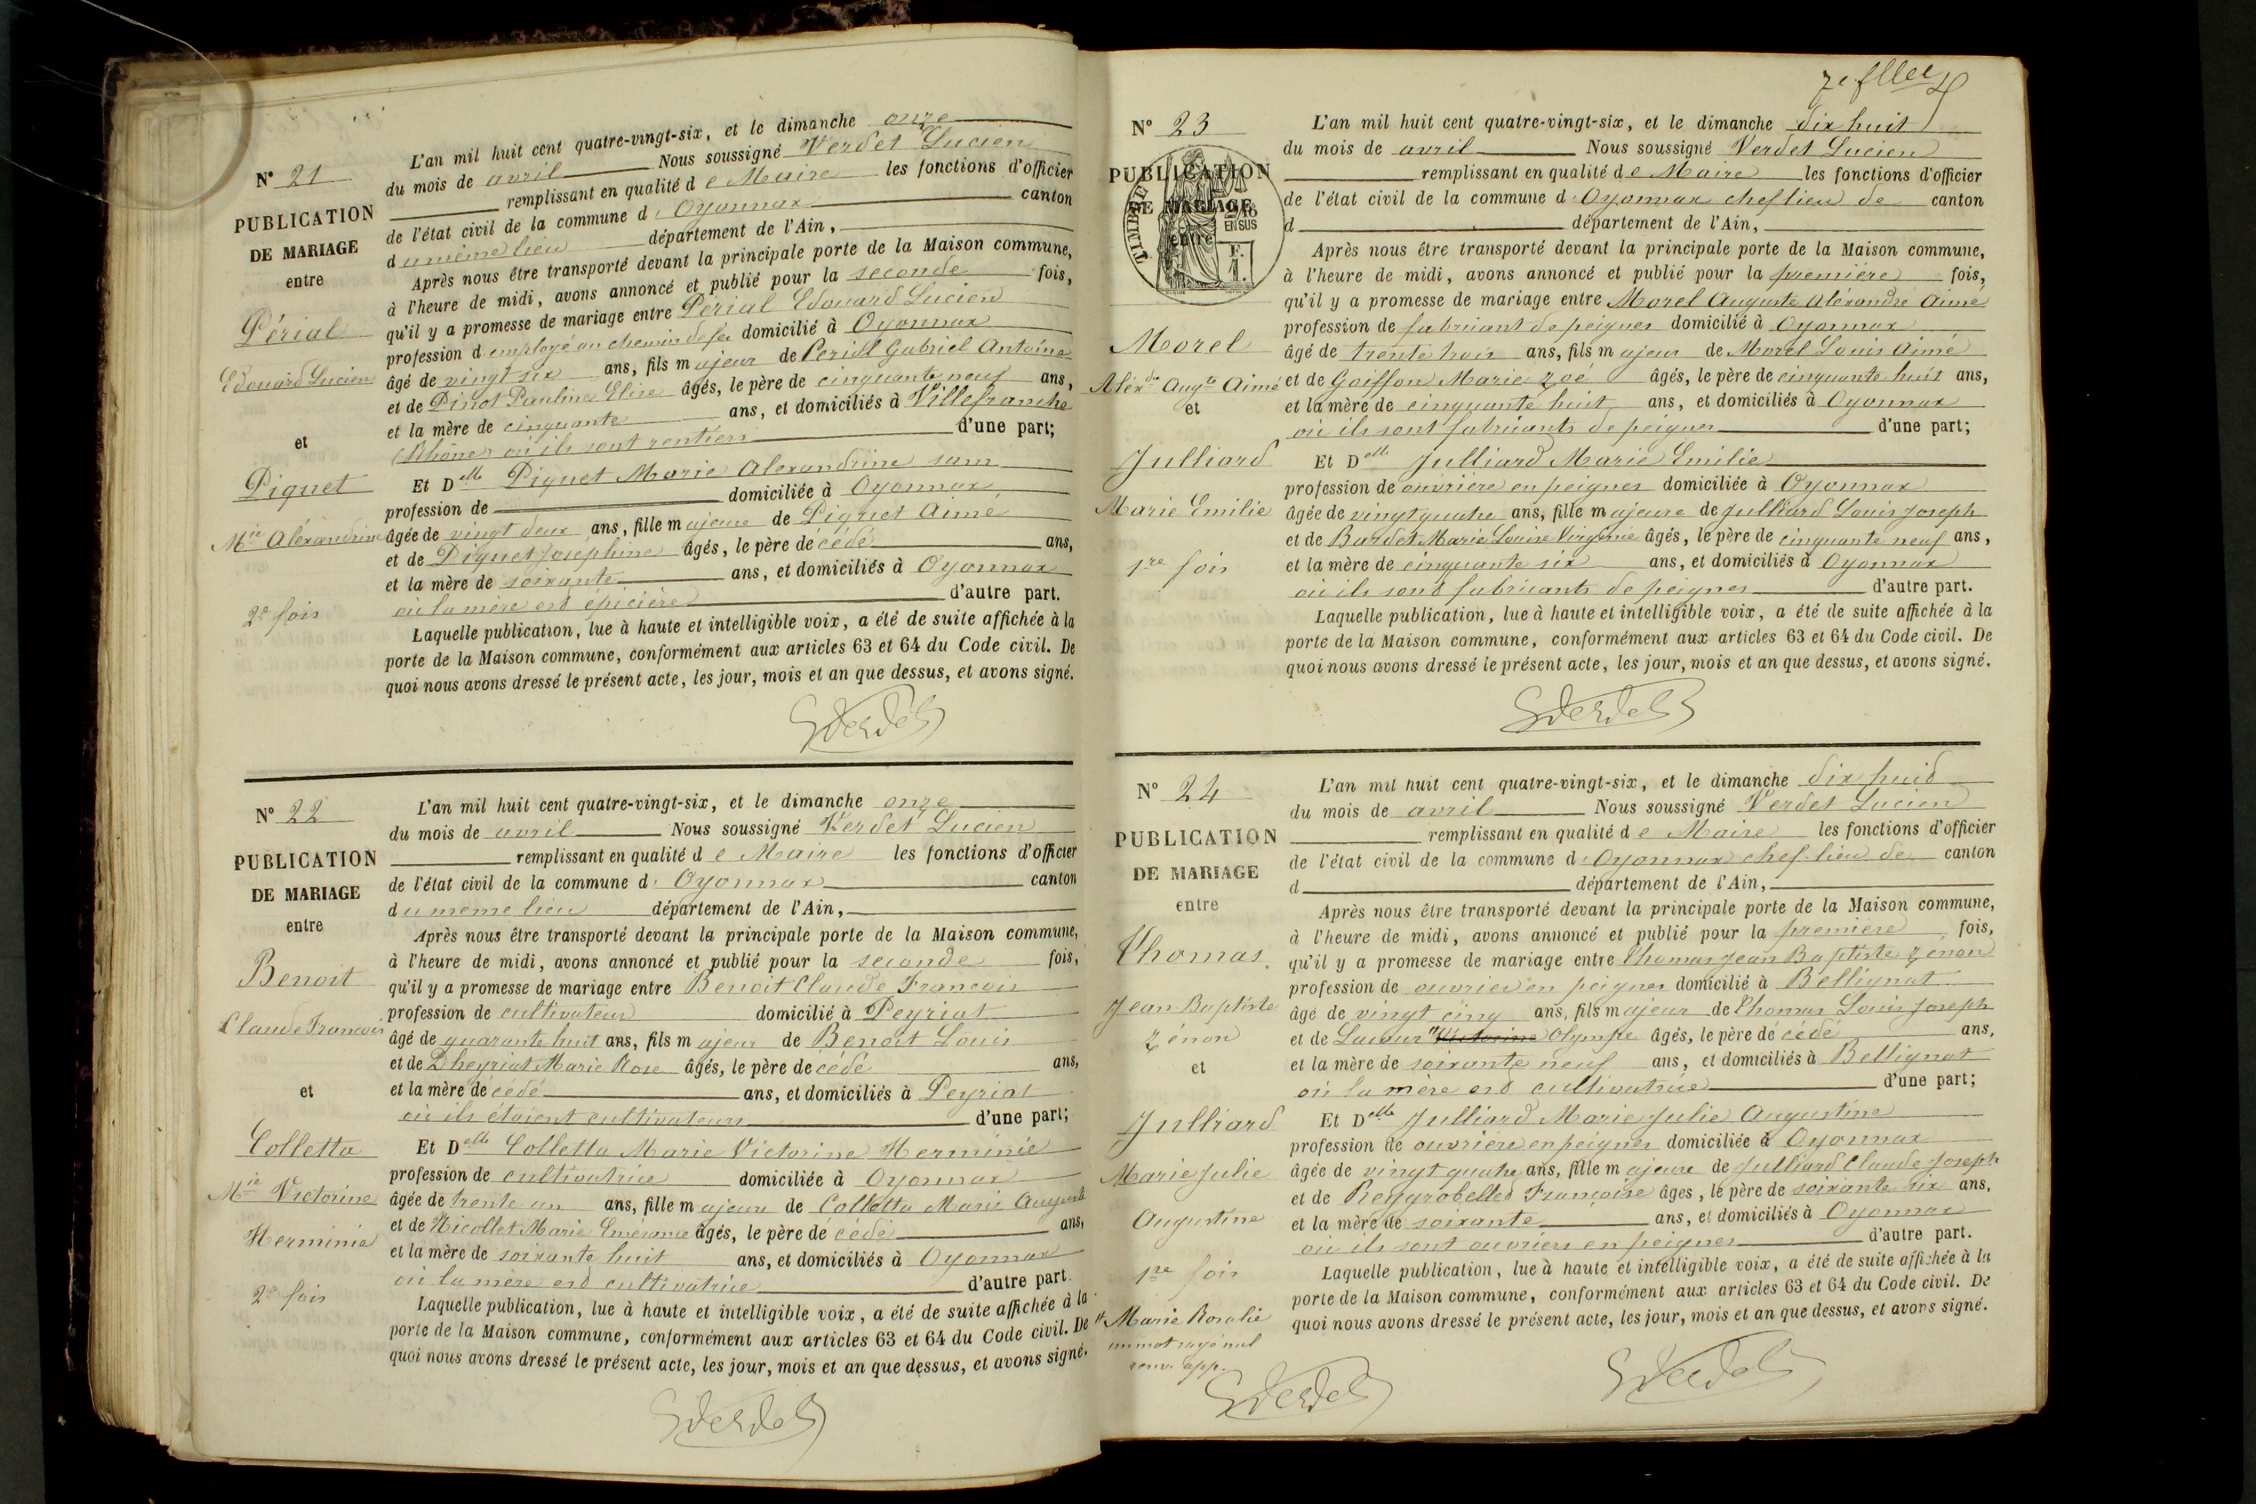 N° 21
PUBLICATION
DE MARIAGE
entre
Périal
Edouard Lucien
et
Piquet
Mie Aléxandrine
2e fois
L'an mil huit cent quatre-vingt-six, et le dimanche onze
du mois de avril Nous soussigné Verdet Lucien
remplissant en qualité de Maire les fonctions d'officier
de l'état civil de la commune d'Oyonnax canton
du même lieu département de l'Ain,
Après nous être transporté devant la principale porte de la Maison commune,
à l'heure de midi, avons annoncé et publié pour la seconde fois,
qu'il y a promesse de mariage entre Périal Edouard Lucien
profession d'employé au chemin de fer domicilié à Oyonnax
âgé de vingt six ans, fils majeur de Périal Gabriel Antoine
et de Pinot Pauline Elise âgés, le père de cinquante neuf ans,
et la mère de cinquante ans, et domiciliés à Villefranche
(Rhône) où ils sont rentiers d'une part;
Et Delle Piquet Marie Alexandrine sans
profession de domiciliée à Oyonnax
âgée de vingt deux ans, fille majeure de Piquet Aimé
et de Piquet Joséphine âgés, le père de cédé ans,
et la mère de soixante ans, et domiciliés à Oyonnax
où la mère est épicière d'autre part.
Laquelle publication, lue à haute et intelligible voix, a été de suite affichée à la
porte de la Maison commune, conformément aux articles 63 et 64 du Code civil. De
quoi nous avons dressé le présent acte, les jour, mois et an que dessus, et avons signé.
LVerdet
N° 22
PUBLICATION
DE MARIAGE
entre
Benoit
Claude François
et
Colletta
Mie Victorine
Herminie
2e fois
L'an mil huit cent quatre-vingt-six, et le dimanche onze
du mois de avril Nous soussigné Verdet Lucien
remplissant en qualité de Maire les fonctions d'officier
de l'état civil de la commune d'Oyonnax canton
du même lieu département de l'Ain,
Après nous être transporté devant la principale porte de la Maison commune,
à l'heure de midi, avons annoncé et publié pour la seconde fois,
qu'il y a promesse de mariage entre Benoit Claude François
profession de cultivateur domicilié à Peyriat
âgé de quarante huit ans, fils majeur de Benoit Louis
et de Dheyriat Marie Rose âgés, le père de cédé ans,
et la mère de cédé ans, et domiciliés à Peyriat
où ils étaient cultivateurs d'une part;
Et Delle Colletta Marie Victorine Herminie
profession de cultivatrice domiciliée à Oyonnax
âgée de trente un ans, fille majeure de Colletta Marie Auguste
et de Nicollet Marie Emérance âgés, le père de cédé ans,
et la mère de soixante huit ans, et domiciliés à Oyonnax
où la mère est cultivatrice d'autre part.
Laquelle publication, lue à haute et intelligible voix, a été de suite affichée à la
porte de la Maison commune, conformément aux articles 63 et 64 du Code civil. De
quoi nous avons dressé le présent acte, les jour, mois et an que dessus, et avons signé.
LVerdet
7e fllet
N° 23
PUBLICATION
DE MARIAGE
entre
TIMBRE
2/10
EN SUS
F.
1.
Morel
Aléxdre Augte Aimé
et
Julliard
Marie Emilie
1re fois
L'an mil huit cent quatre-vingt-six, et le dimanche dix huit
du mois de avril Nous soussigné Verdet Lucien
remplissant en qualité de Maire les fonctions d'officier
de l'état civil de la commune d'Oyonnax chef lieu de canton
d département de l'Ain,
Après nous être transporté devant la principale porte de la Maison commune,
à l'heure de midi, avons annoncé et publié pour la première fois,
qu'il y a promesse de mariage entre Morel Auguste Aléxandre Aimé
profession de fabricant de peignes domicilié à Oyonnax
âgé de trente trois ans, fils majeur de Morel Louis Aimé
et de Goiffon Marie Zoé âgés, le père de cinquante huit ans,
et la mère de cinquante huit ans, et domiciliés à Oyonnax
où ils sont fabricants de peignes d'une part;
Et Delle Julliard Marie Emilie
profession de ouvrière en peignes domiciliée à Oyonnax
âgée de vingt quatre ans, fille majeure de Julliard Louis Joseph
et de Bardet Marie Louise Virginie âgés, le père de cinquante neuf ans,
et la mère de cinquante six ans, et domiciliés à Oyonnax
où ils sont fabricants de peignes d'autre part.
Laquelle publication, lue à haute et intelligible voix, a été de suite affichée à la
porte de la Maison commune, conformément aux articles 63 et 64 du Code civil. De
quoi nous avons dressé le présent acte, les jour, mois et an que dessus, et avons signé.
LVerdet
N° 24
PUBLICATION
DE MARIAGE
entre
Thomas
Jean Baptiste
Zénon
et
Julliard
Marie Julie
Augustine
1re fois
" Marie Rosalie
un mot rayé nul
renv. app.
LVerdet
L'an mil huit cent quatre-vingt-six, et le dimanche dix huit
du mois de avril Nous soussigné Verdet Lucien
remplissant en qualité de Maire les fonctions d'officier
de l'état civil de la commune d'Oyonnax chef-lieu de canton
d département de l'Ain,
Après nous être transporté devant la principale porte de la Maison commune,
à l'heure de midi, avons annoncé et publié pour la première fois,
qu'il y a promesse de mariage entre Thomas Jean Baptiste Zénon
profession de ouvrier en peignes domicilié à Bellignat
âgé de vingt cinq ans, fils majeur de Thomas Louis Joseph
et de " Victorine Olympe âgés, le père de cédé ans,
et la mère de soixante neuf ans, et domiciliés à Bellignat
où la mère est cultivatrice d'une part;
Et Delle Julliard Marie Julie Augustine
profession de ouvrière en peignes domiciliée à Oyonnax
âgée de vingt quatre ans, fille majeure de Julliard Claude Joseph
et de Reygrobellet Françoise âgés, le père de soixante six ans,
et la mère de soixante ans, et domiciliés à Oyonnax
où ils sont ouvriers en peignes d'autre part.
Laquelle publication, lue à haute et intelligible voix, a été de suite affichée à la
porte de la Maison commune, conformément aux articles 63 et 64 du Code civil. De
quoi nous avons dressé le présent acte, les jour, mois et an que dessus, et avons signé.
LVerdet